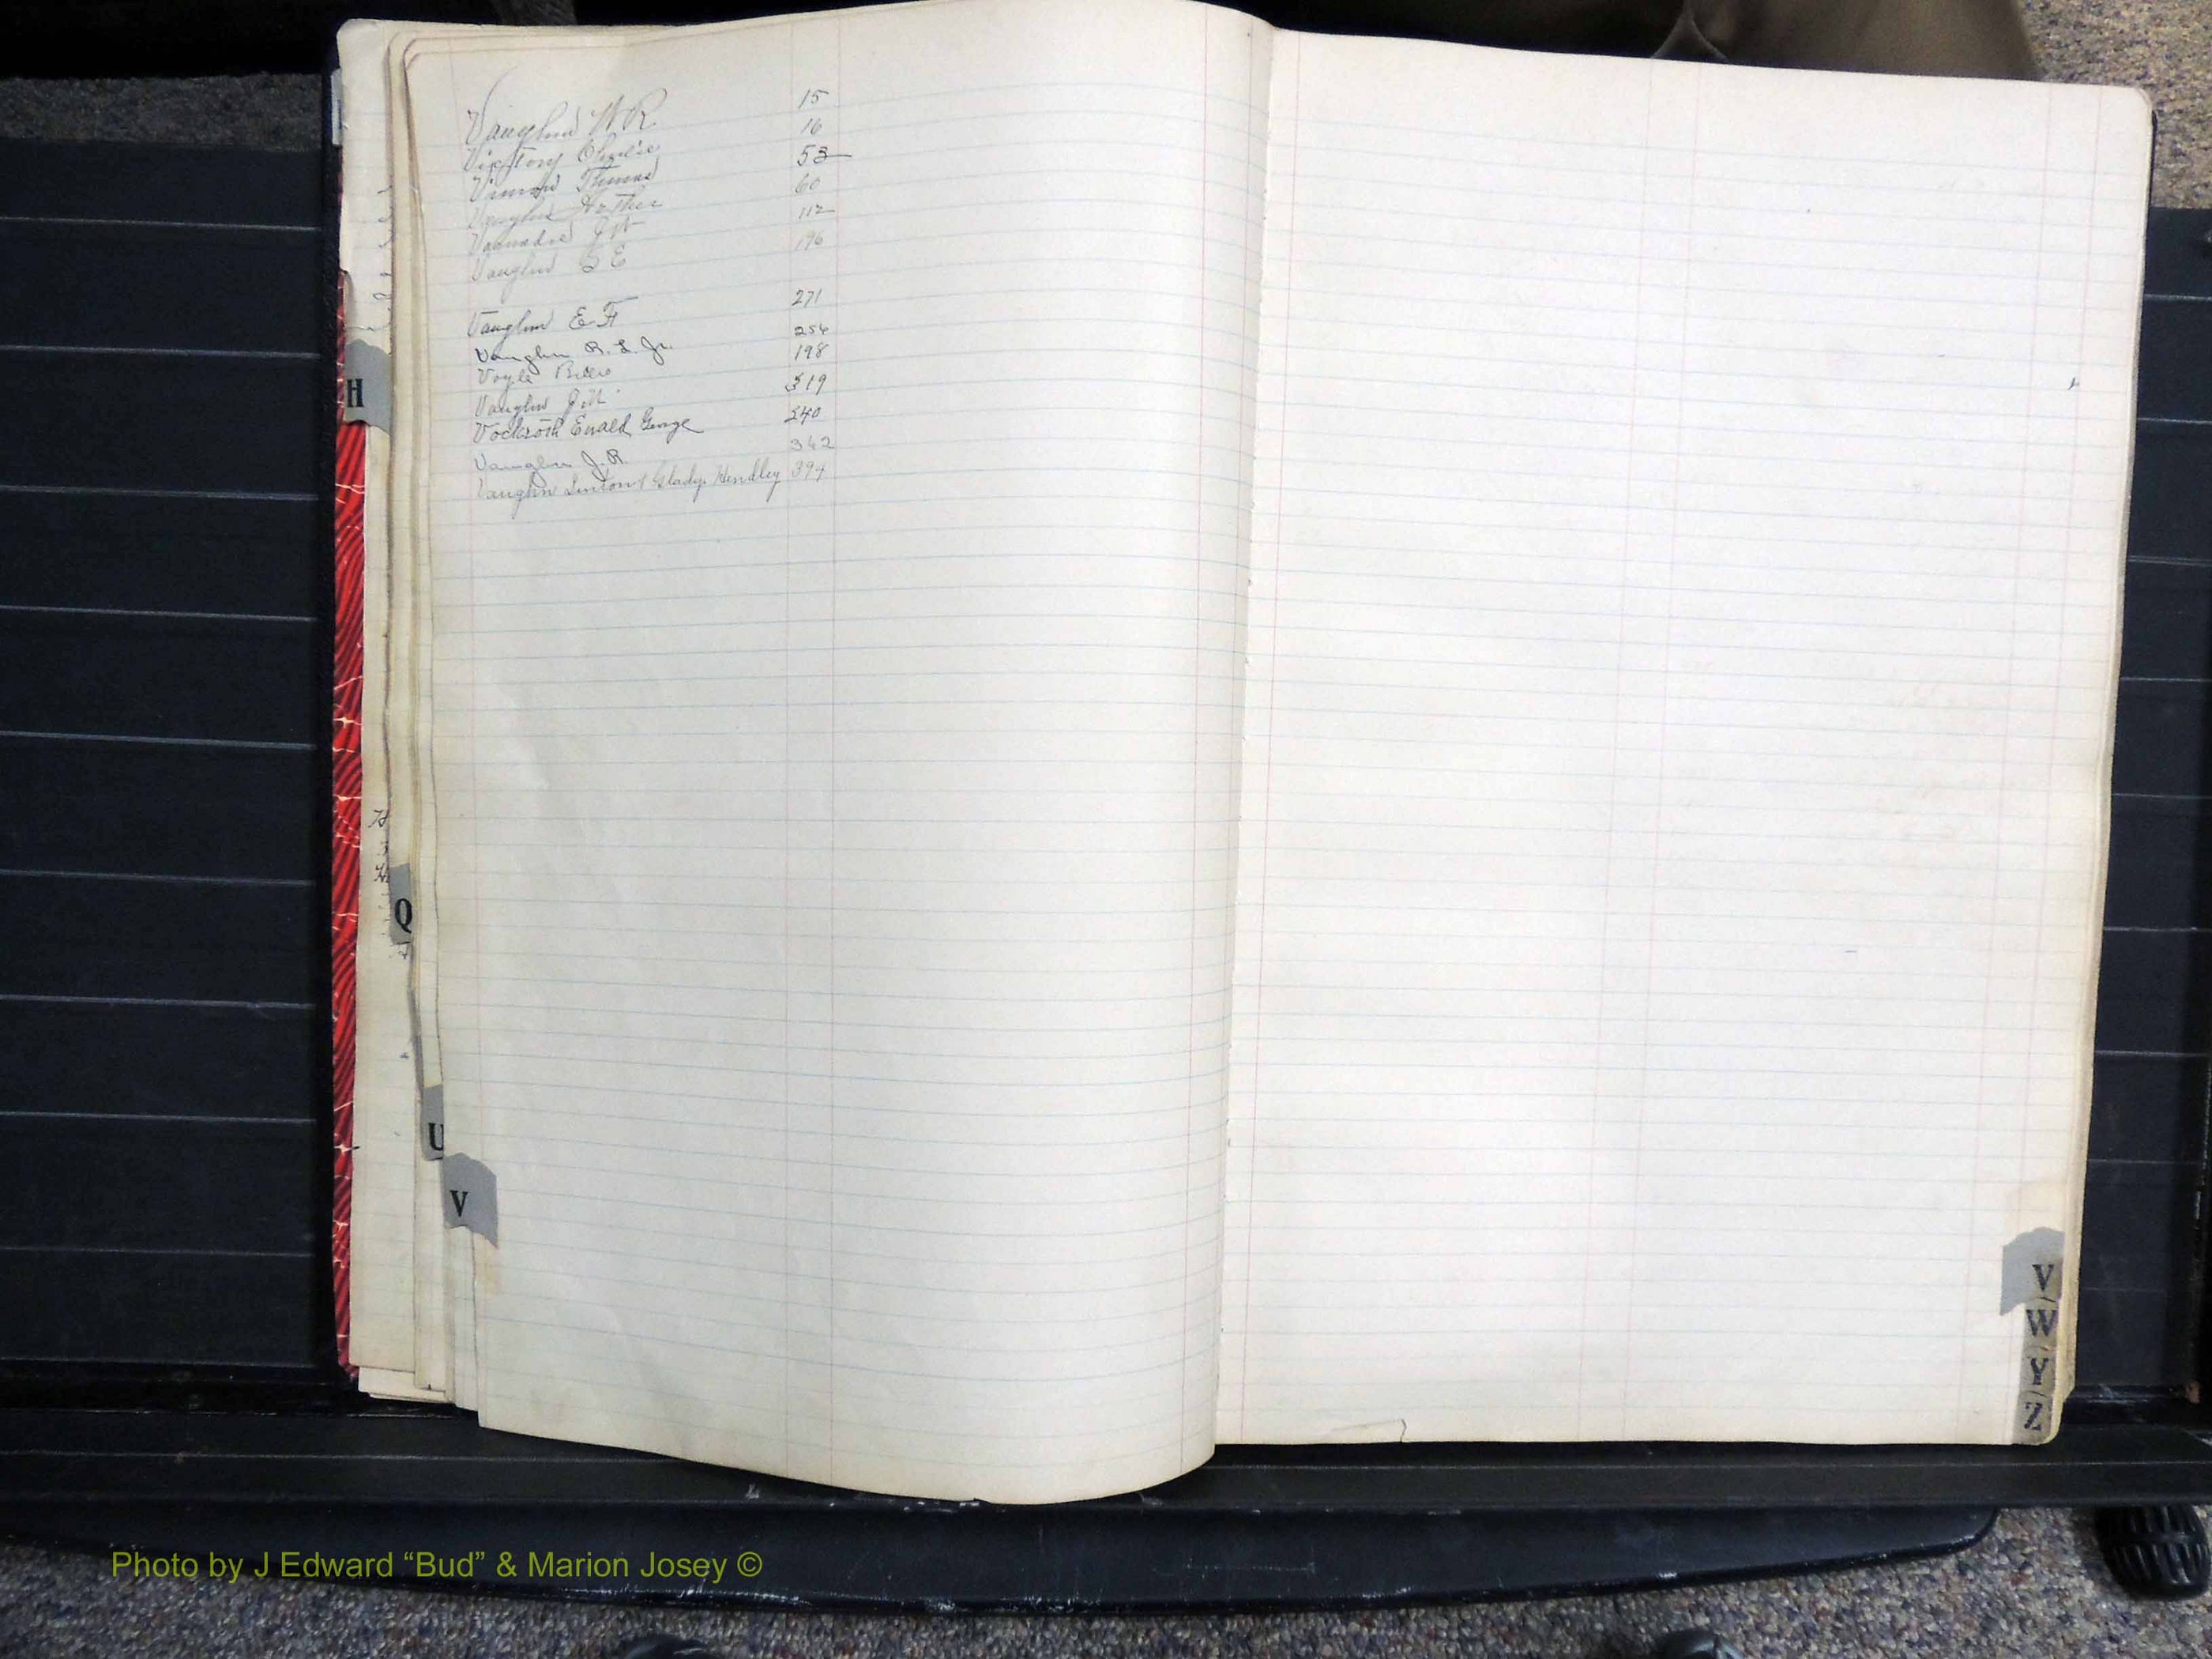 Vaughn W R 15
Victory Charlie 16
Thomas 53
Vaughn Arther 60
112
Vaughn B E 196
Vaughn E F 271
Vaughn R. L. Jr. 254
Voyle 198
Vaughn J M 319
Vockroth Ewald George 340
Vaughn J. R. 362
Vaughn Linton & Gladys Hendley 394
H
Q
U
V
V
W
Y
Z
Photo by J Edward “Bud” & Marion Josey ©